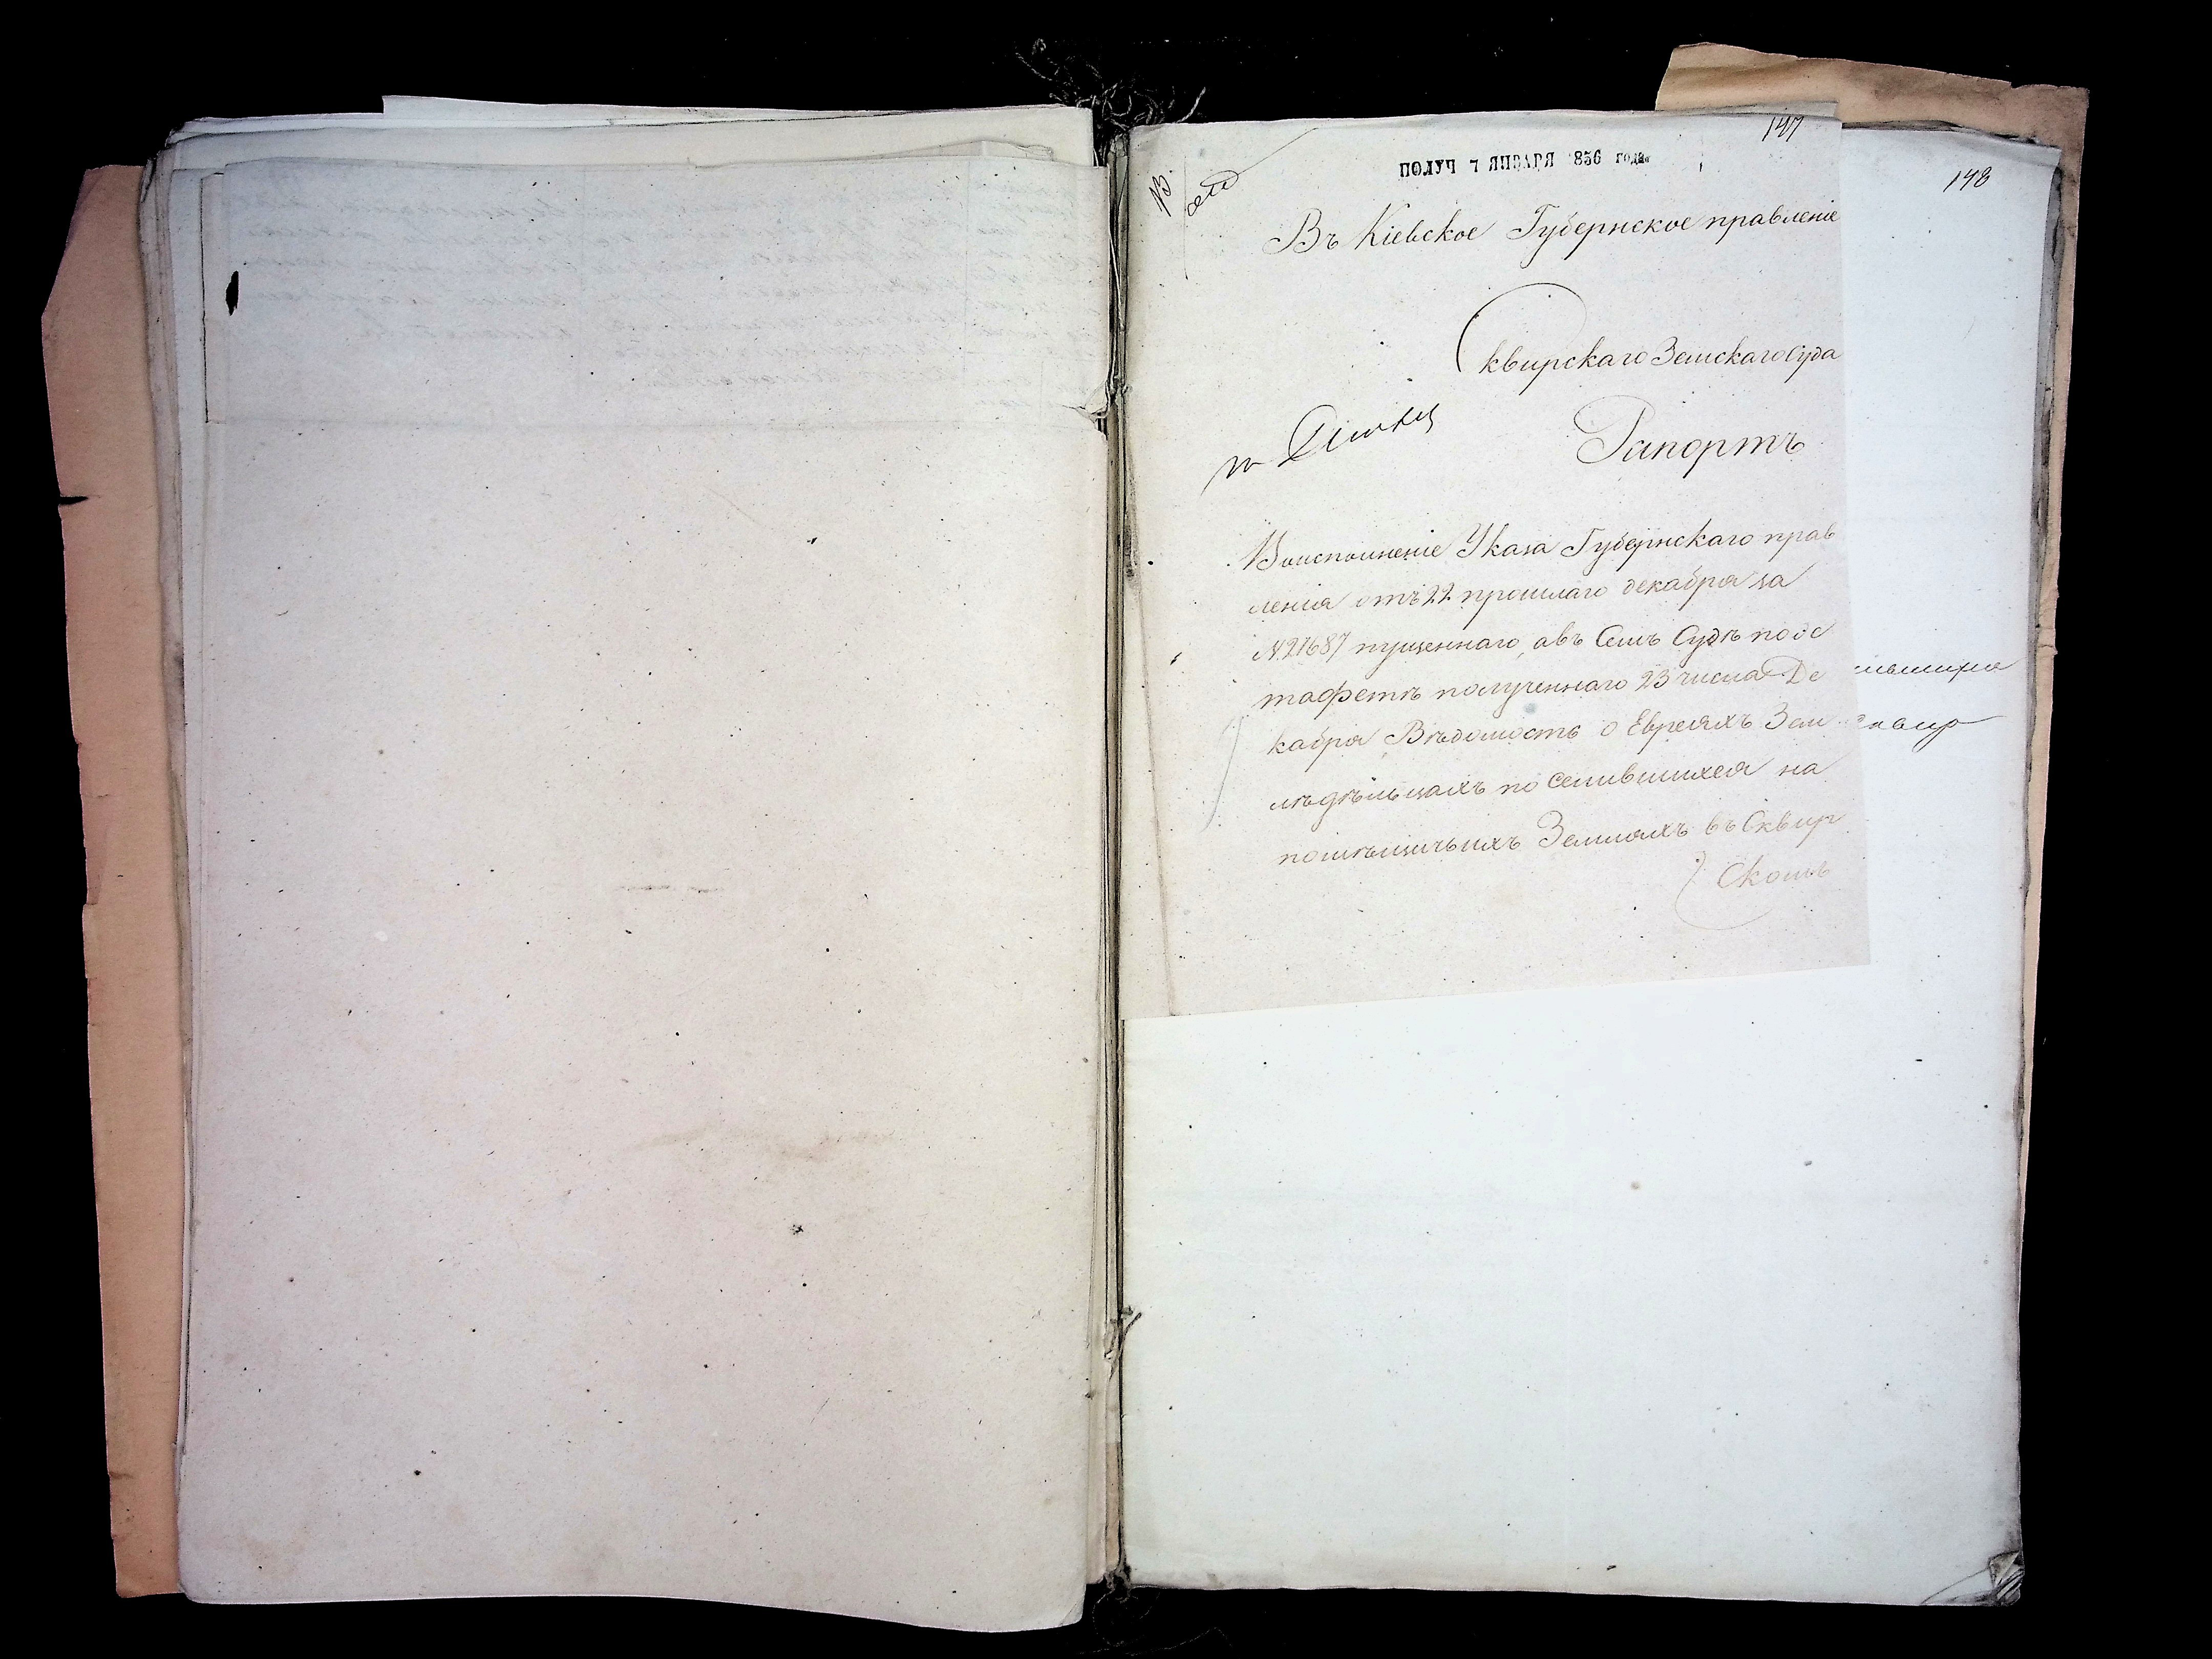 147
148
ПОЛУЧ 7 ЯНВАРЯ 836 года
Въ Кіевское Губернское правленіе
Сквирскаго Земскаго Суда
Рапортъ
Воисполненіе Указа Губернскаго прав
ленія отъ 22 прошлаго декабря за
№ 21687 пущеннаго, авъ Семъ Судѣ поэс
тафетѣ полученнаго 23 числа Де
кабря Вѣдомость о Евреяхъ Зем
ледѣльцахъ поселившихся на
помѣщичьихъ Земляхъ въ Сквир
Скомъ